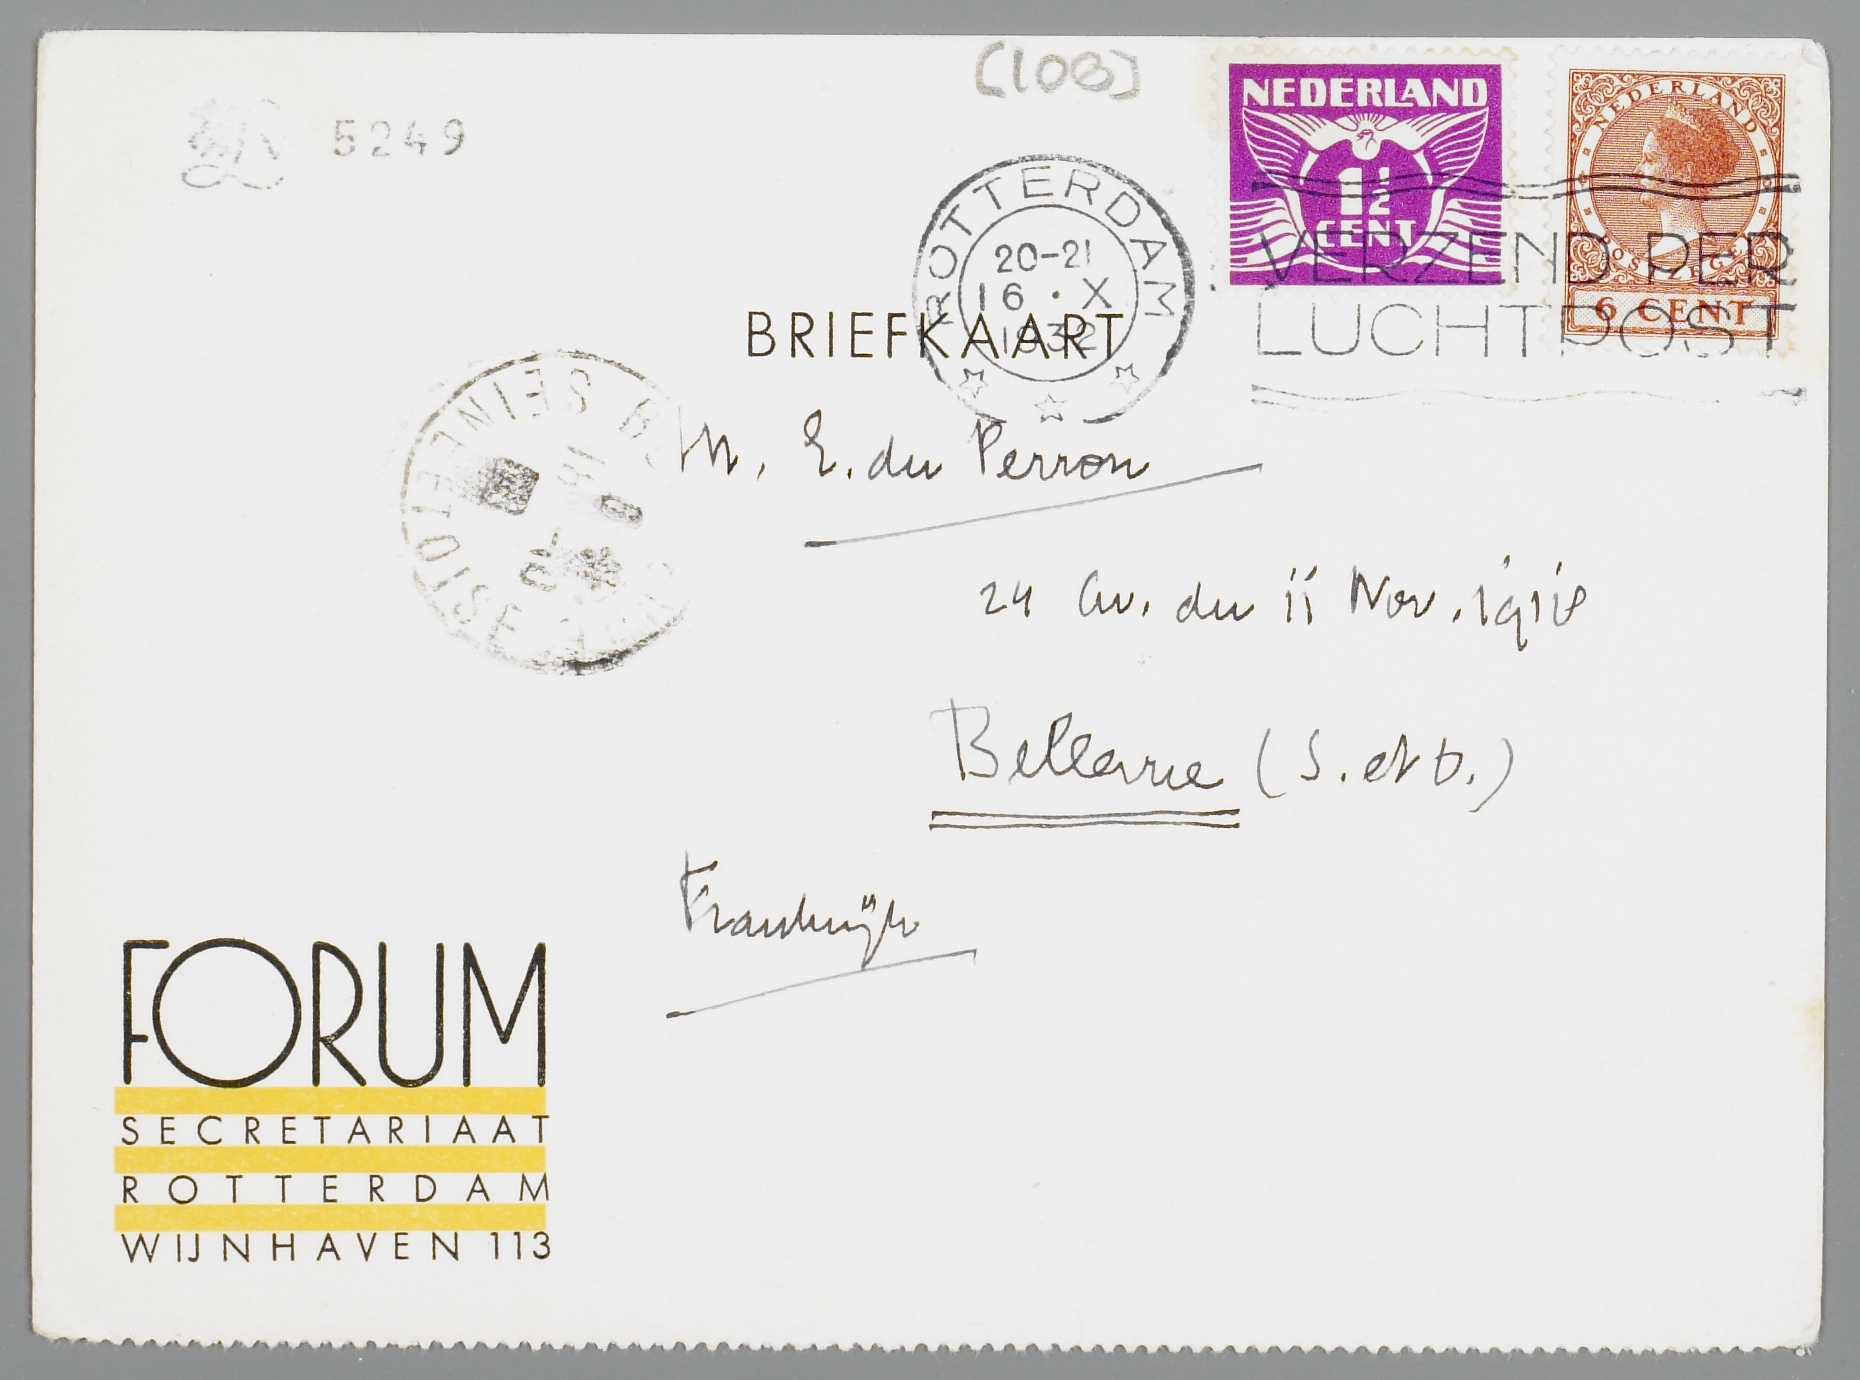 (103)
5249
NEDERLAND
1½
CENT
NEDERLAND
POSTZEGEL
6 CENT
ROTTERDAM
20-21
16 · X
1932
VERZEND PER
LUCHTPOST
BRIEFKAART
SEINE ET OISE
M. E. du Perron
24 Av. du 11 Nov. 1918
Bellevue (S. et O.)
Frankrijk
FORUM
SECRETARIAAT
ROTTERDAM
WIJNHAVEN 113